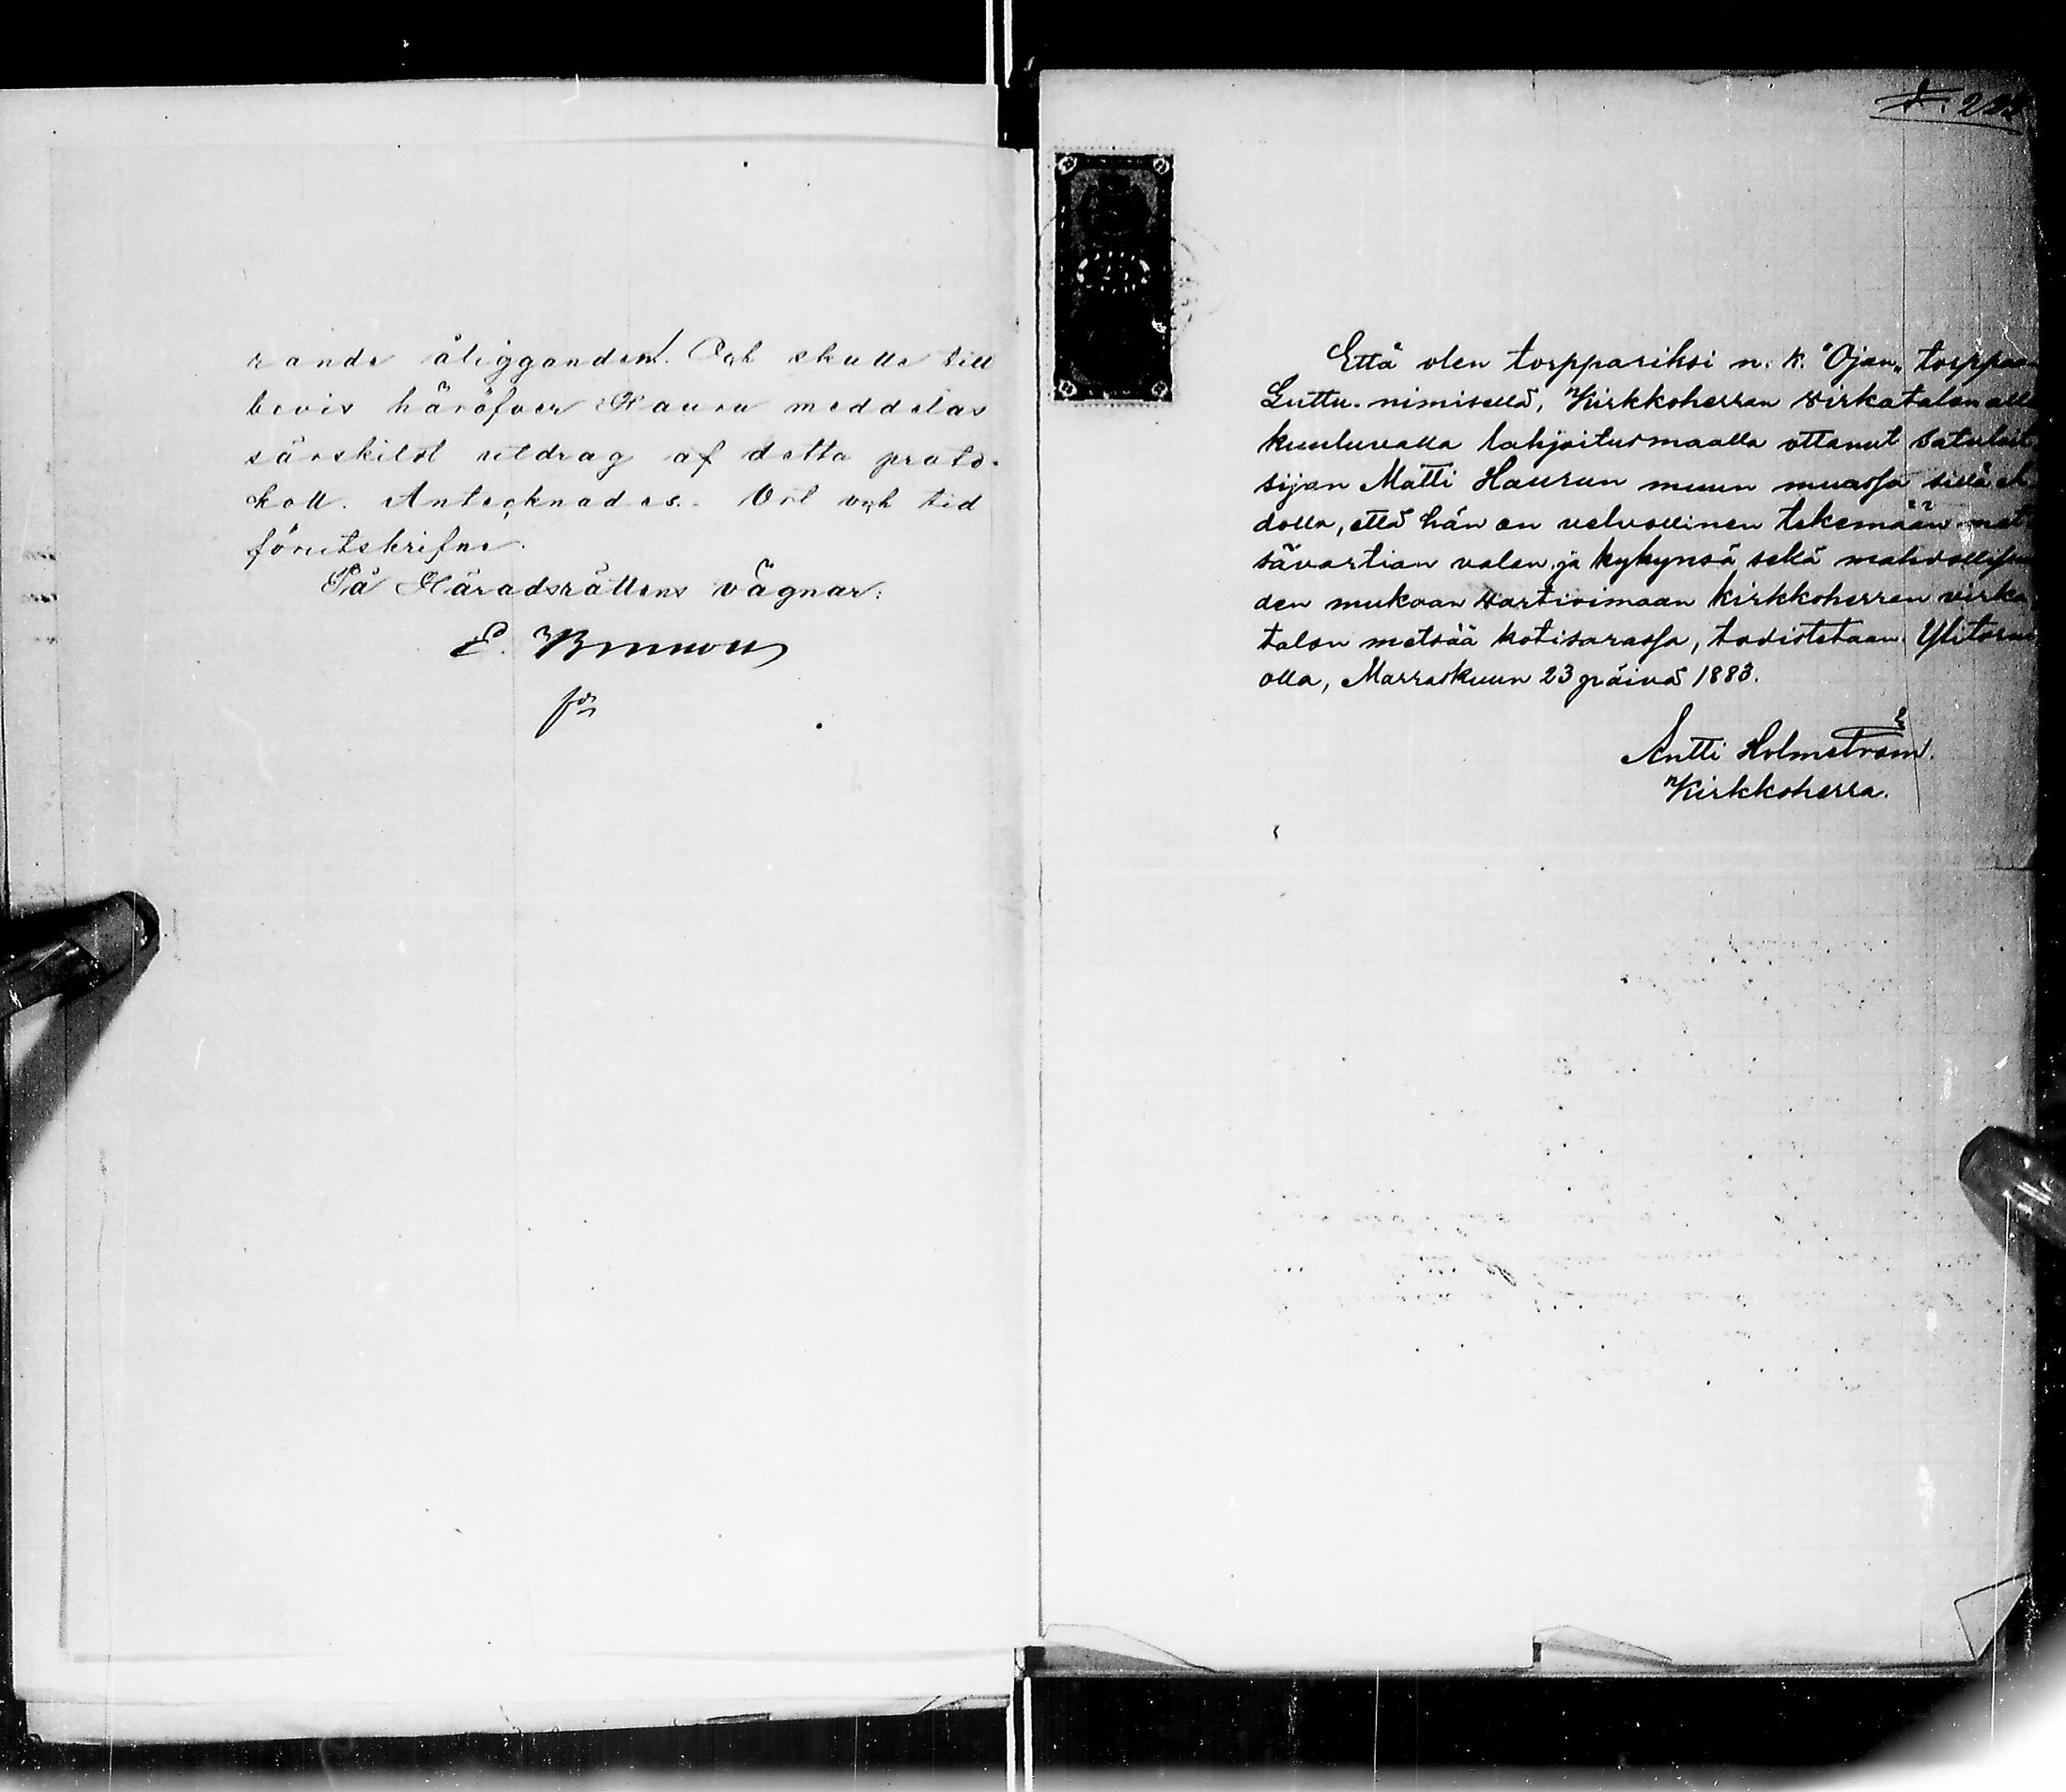 rande åligganden. Och skulle till
bevis häröfver Hauru meddelas
särskildt utdrag af detta proto-
koll. Antecknades. Ort och tid
förutskrifne.
På Häradsrättens vägnar:
E.
25
Että olen torppariksi n. k. "Ojan" torppaa
Luttu-nimisellä, Kirkkoherran virkatalon alle
kuuluvalla lahjoitusmaalla ottanut
sijan Matti Haurun muun muassa sillä eh-
dolla, että hän on velvollinen tekemään met-
sävartian valan ja kykynsä sekä mahdollisuu-
den mukaan vartioimaan kirkkoherran virka-
talon metsää kotisarassa, todistetaan Ylitorni-
olla, Marraskuun 23 päivä 1883.
Antti Holmström
Kirkkoherra.